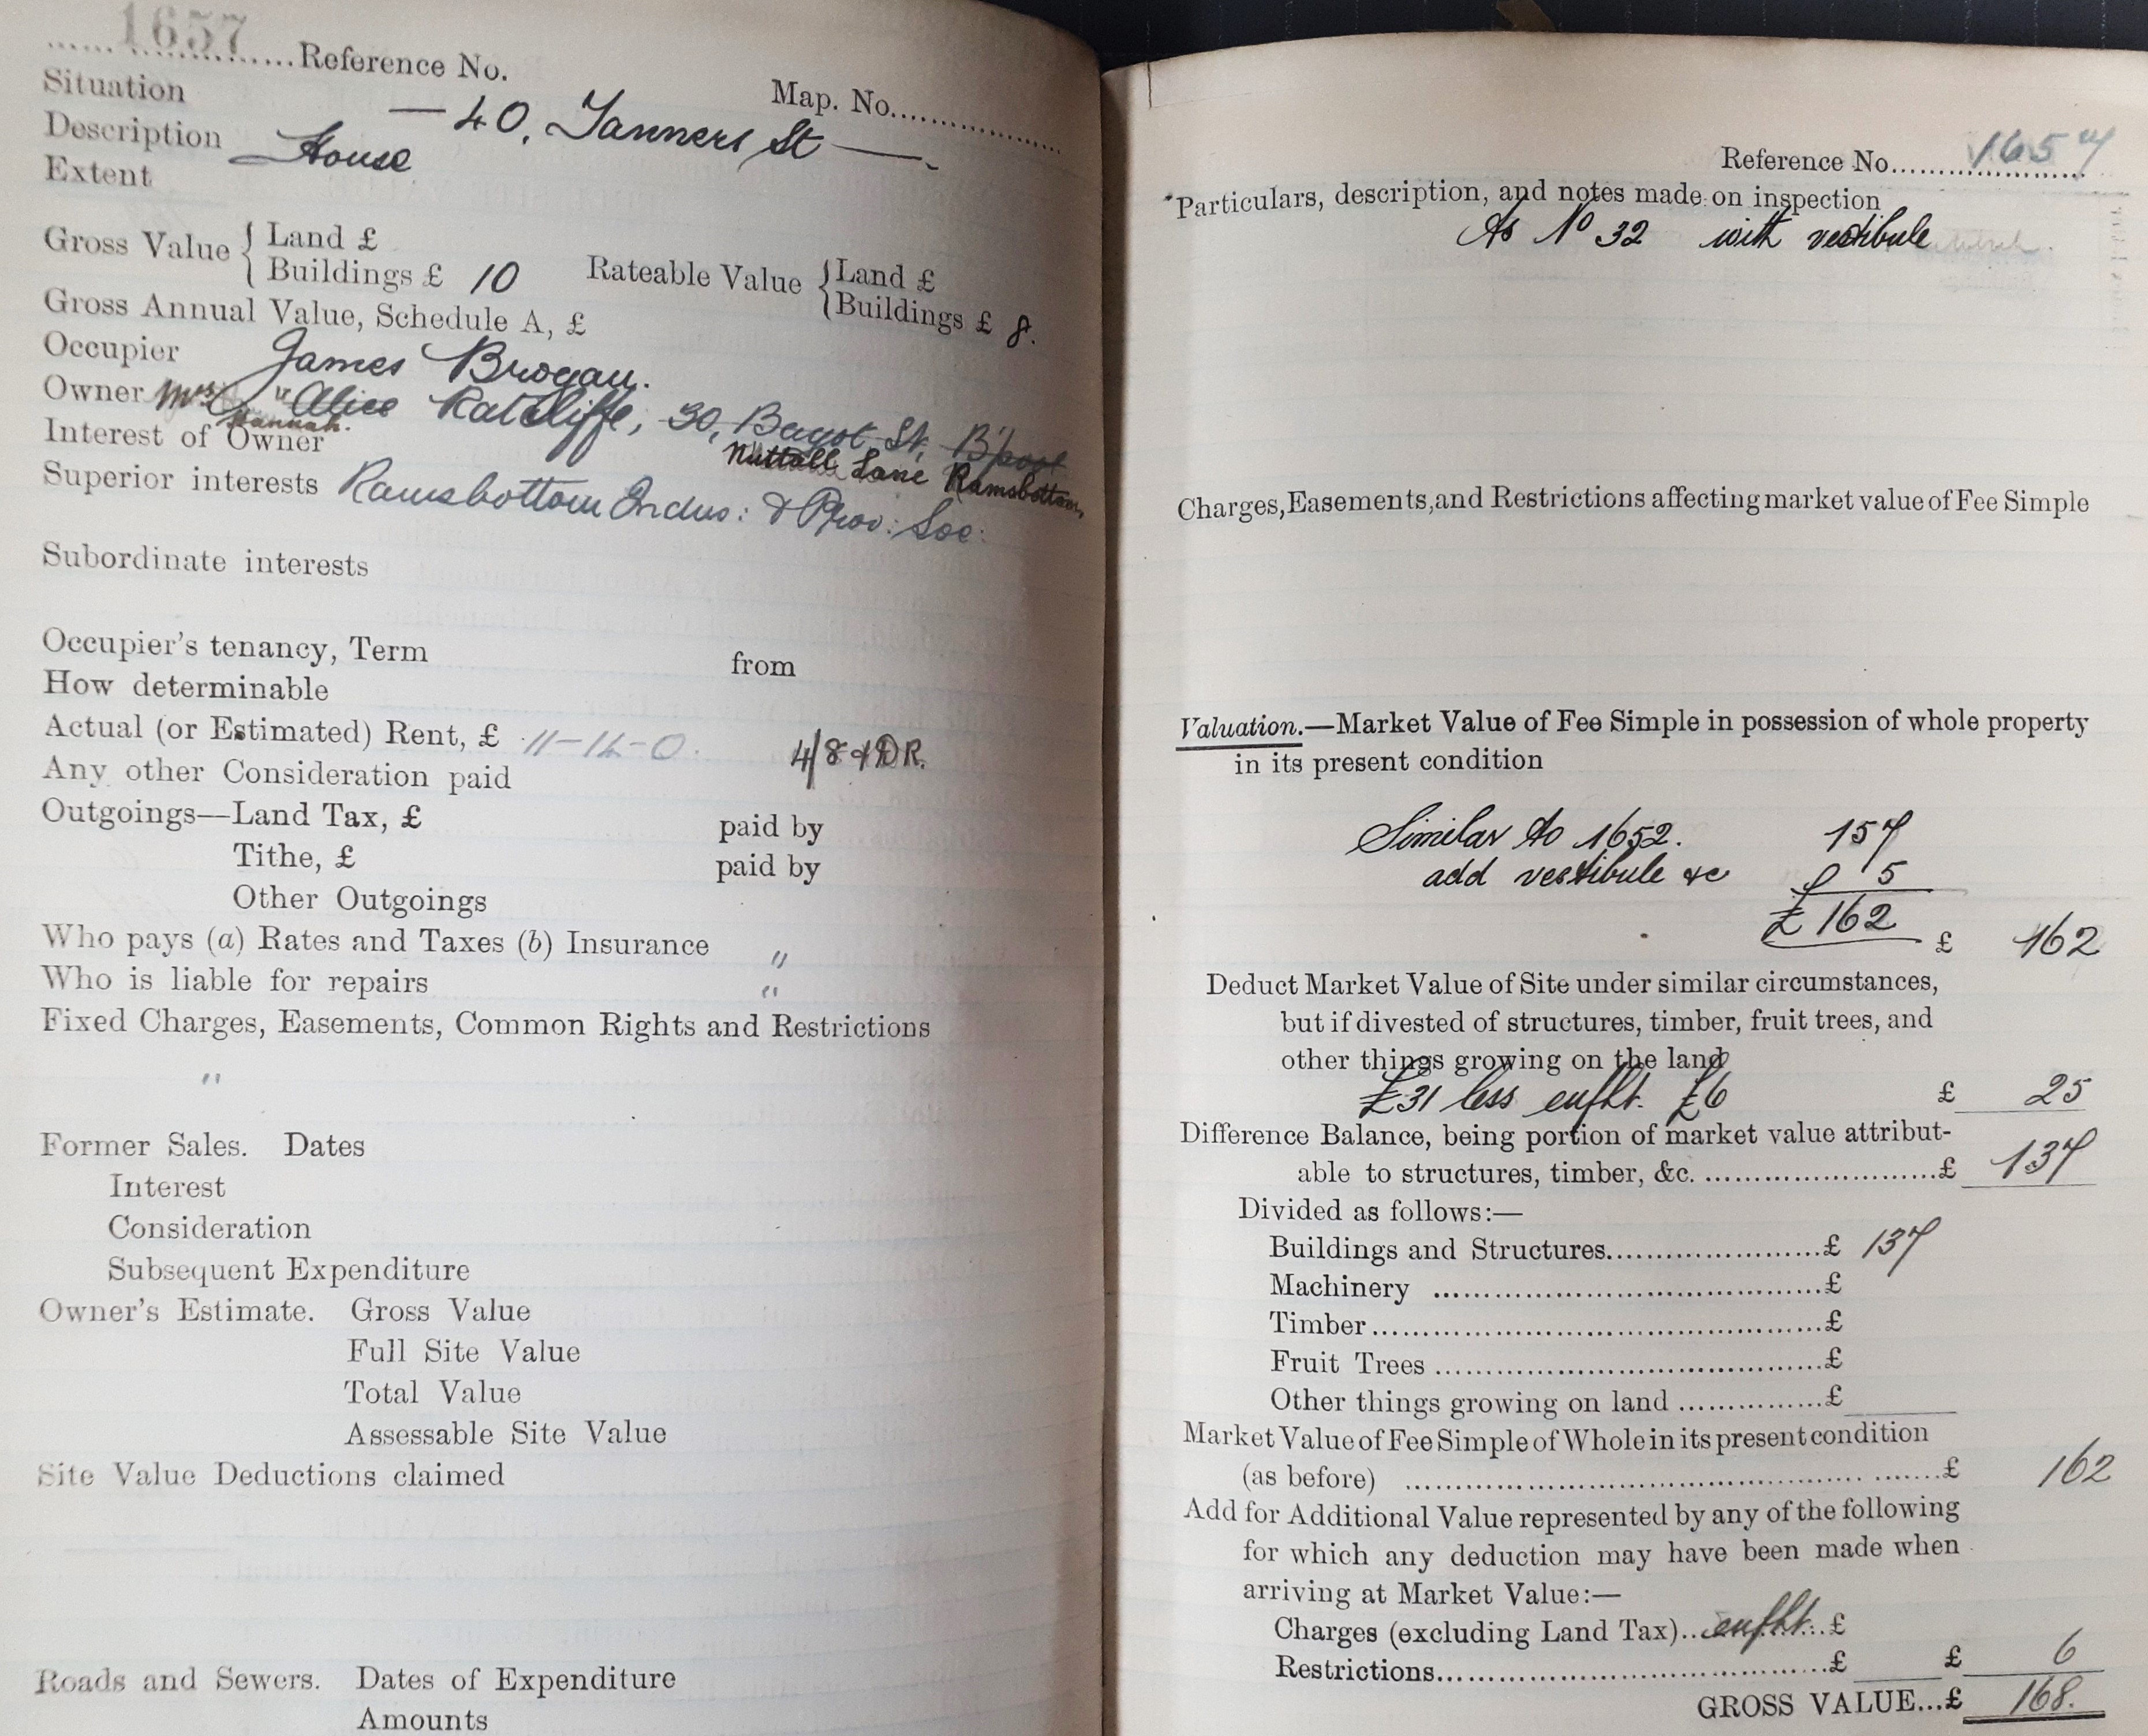 1657
Reference No.
Map. No.
Situation — 40, Tanners St —
Description House
Extent
Gross Value { Land £
Buildings £ 10
Rateable Value { Land £
Buildings £ 8.
Gross Annual Value, Schedule A, £
Occupier James Brogan.
Owner Mrs " Alice Ratcliffe, 30, Bagot St, B'pool
Hannah.
Nuttall Lane Ramsbottom
Interest of Owner
Superior interests Ramsbottom Indus: & Prov: Soc:
Subordinate interests
Occupier's tenancy, Term from
How determinable
Actual (or Estimated) Rent, £ 11-12-0. 4/8 & DR.
Any other Consideration paid
Outgoings—Land Tax, £ paid by
Tithe, £ paid by
Other Outgoings
Who pays (a) Rates and Taxes (b) Insurance "
Who is liable for repairs "
Fixed Charges, Easements, Common Rights and Restrictions
"
Former Sales. Dates
Interest
Consideration
Subsequent Expenditure
Owner's Estimate. Gross Value
Full Site Value
Total Value
Assessable Site Value
Site Value Deductions claimed
Roads and Sewers. Dates of Expenditure
Amounts
Reference No. 1657
Particulars, description, and notes made on inspection
As No 32 with vestibule
Charges, Easements, and Restrictions affecting market value of Fee Simple
Valuation.—Market Value of Fee Simple in possession of whole property
in its present condition
Similar to 1652. 157
add vestibule &c 5
£ 162
£ 162
Deduct Market Value of Site under similar circumstances,
but if divested of structures, timber, fruit trees, and
other things growing on the land
£31 less enfht. £6 £ 25
Difference Balance, being portion of market value attribut-
able to structures, timber, &c. £ 137
Divided as follows:—
Buildings and Structures £ 137
Machinery £
Timber £
Fruit Trees £
Other things growing on land £
Market Value of Fee Simple of Whole in its present condition
(as before) £ 162
Add for Additional Value represented by any of the following
for which any deduction may have been made when
arriving at Market Value:—
Charges (excluding Land Tax) enfht. £
Restrictions £ £ 6
GROSS VALUE...£ 168.